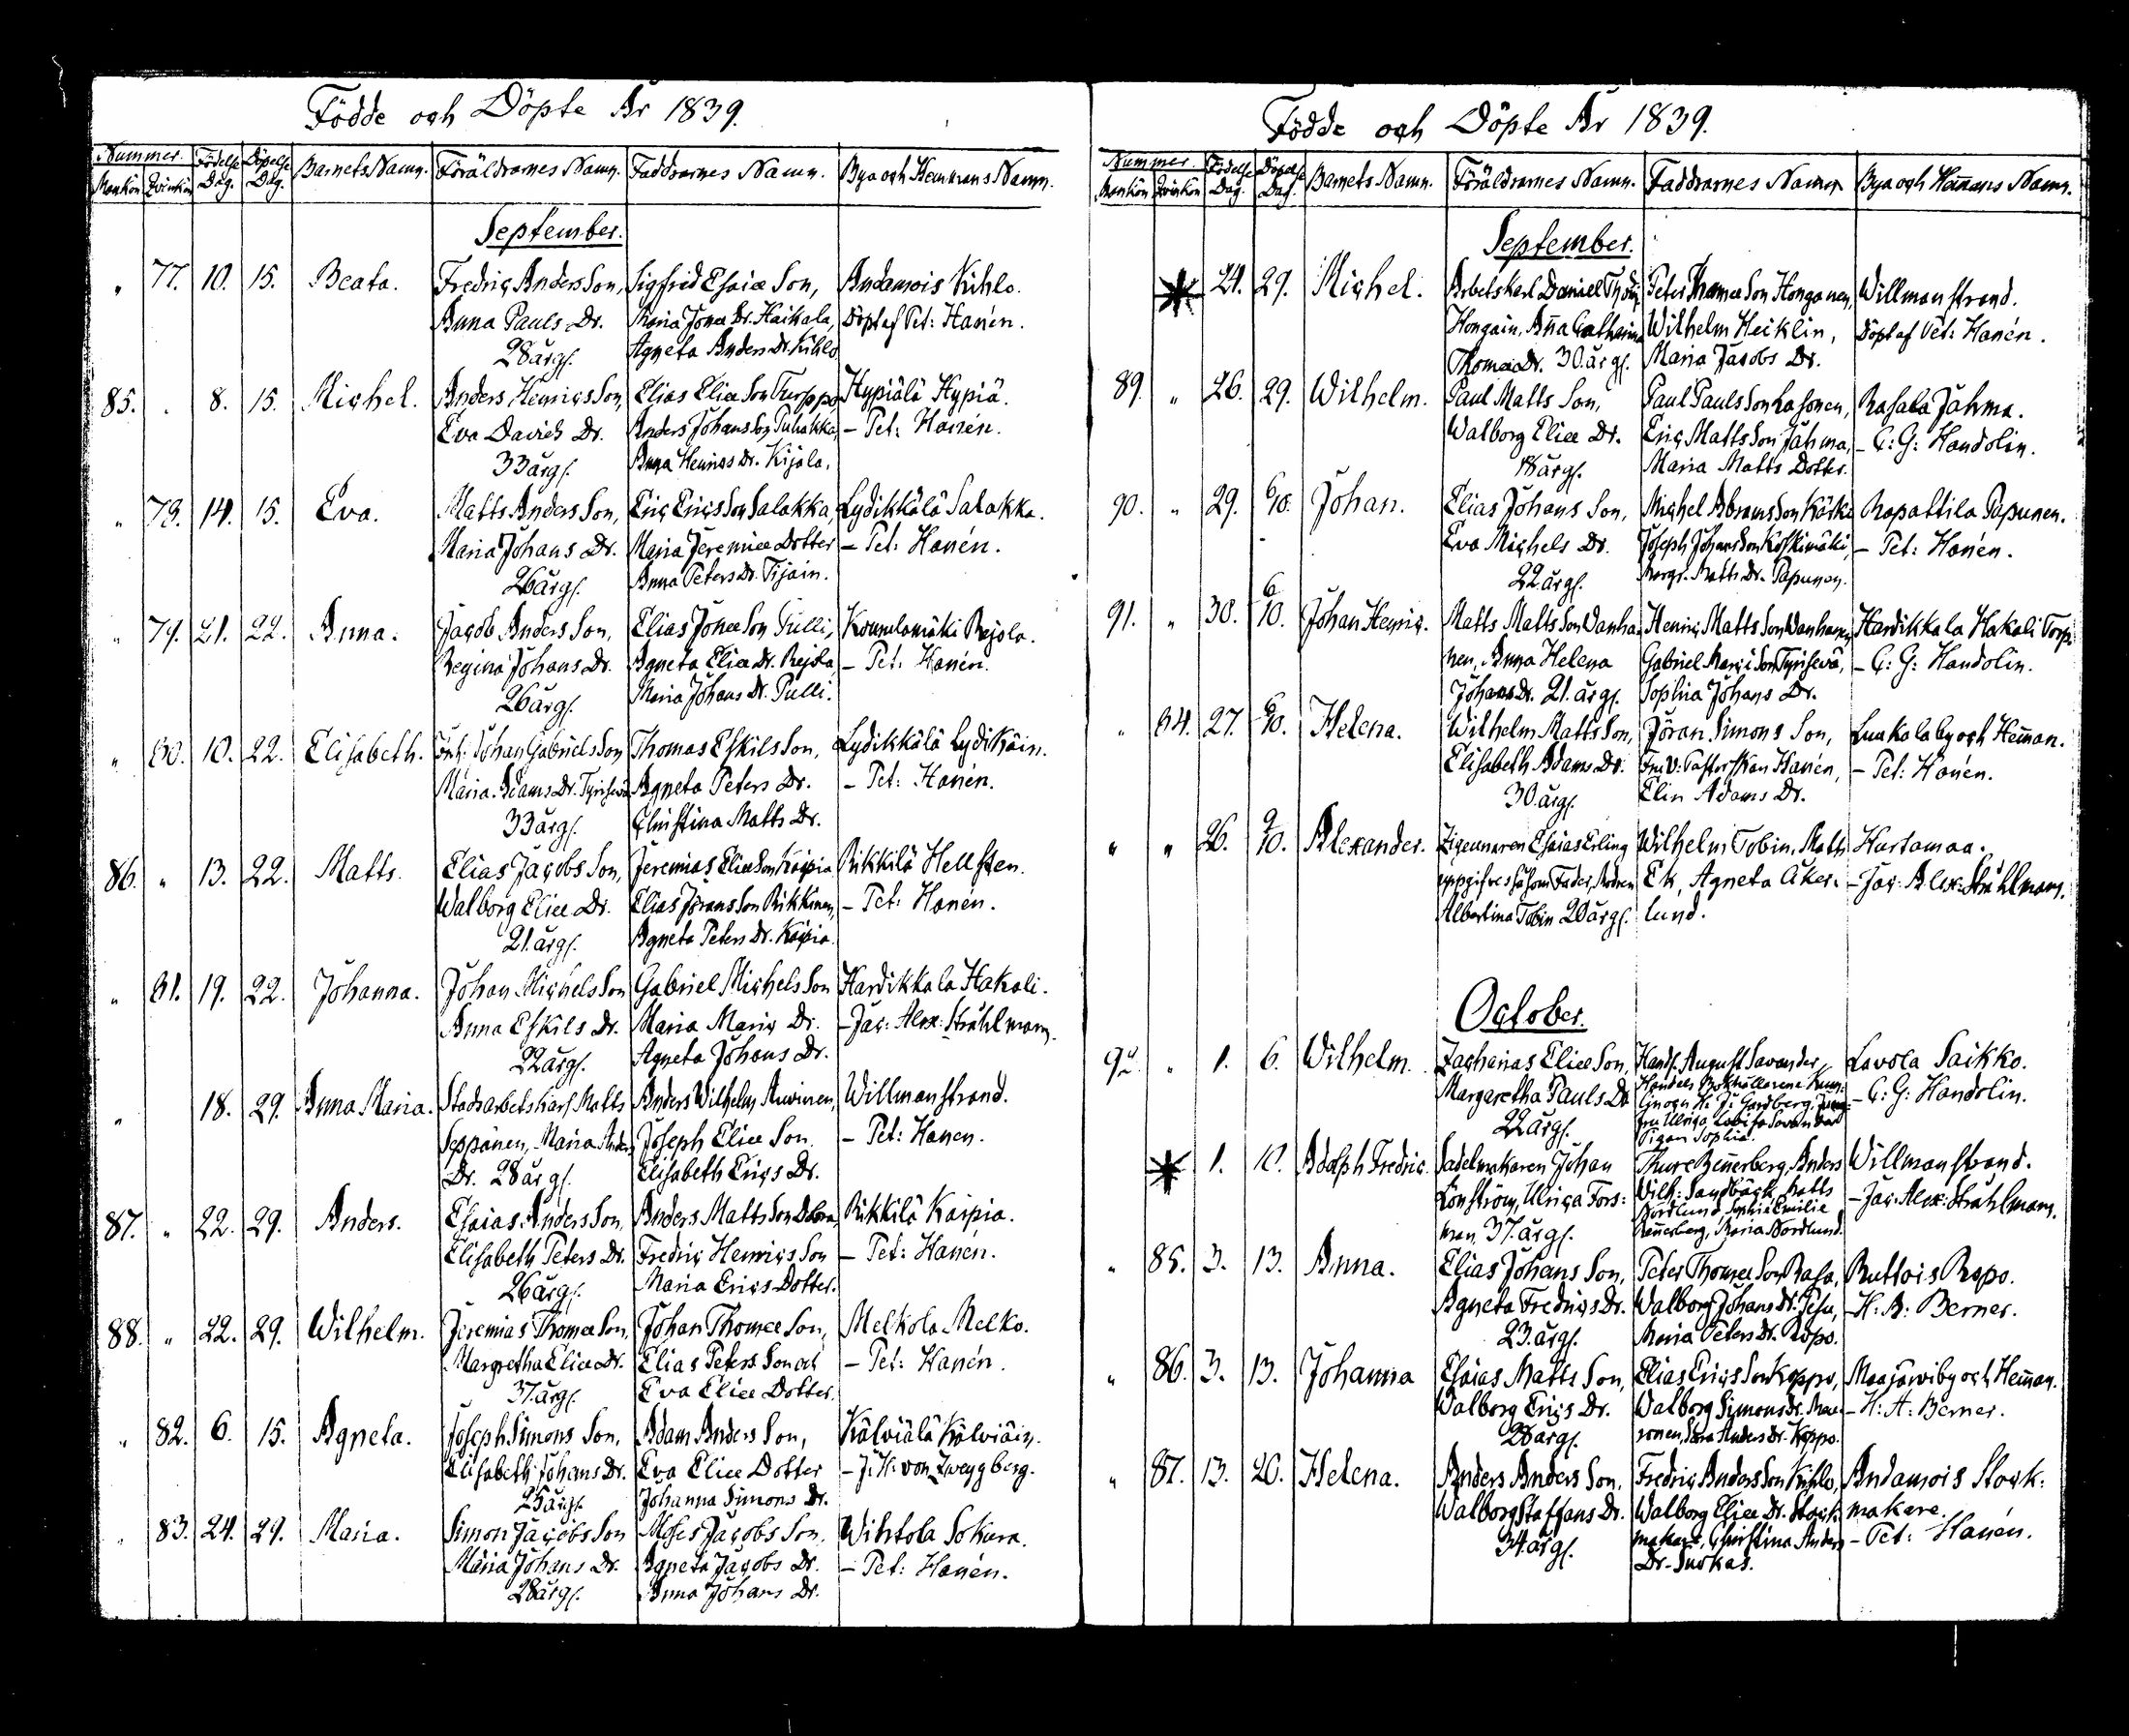 Födde och Döpte År 1839.
Nummer. Födelse Döpelse Barnets Namn. Föräldrarnes Namn. Faddrarnes Namn. Bya och Hemmans Namn.
Mankön Qvinkön Dag. Dag.
September.
" 77. 10. 15. Beata. Fredric Anders Son, Sigfrid Esaiæ Son, Andamois Kihlo.
Anna Pauls Dr. Maria Jonæ Dr. Haikala, Döpt af Pet: Hanén.
28 årg. Agneta Anders Dr. Kihlo
85. " 8. 15. Michel. Anders Henrics Son, Elias Eliæ Son Turppo, Hypiälä Hypiä.
Eva Davids Dr. Anders Johans Son Puhakka, – Pet: Hanén.
33 årg. Anna Henrics Dr. Kijala.
" 78. 14. 15. Eva. Matts Anders Son, Eric Erics Son Salakka, Lydikkälä Salakka.
Maria Johans Dr. Maria Jeremiæ Dotter – Pet: Hanén.
26 årg. Anna Peters Dr. Tijain.
" 79. 21. 22. Anna. Jacob Anders Son, Elias Jonæ Son Pulli, Kounelamäki Rejola.
Regina Johans Dr. Agneta Eliæ Dr. Rejola, – Pet: Hanén.
26 årg. Maria Johans Dr. Pulli.
" 80. 10. 22. Elisabeth. Inh: Johan Gabriels Son Thomas Eskils Son, Lydikkälä Lydikäin.
Maria Adams Dr. Tyrisevä Agneta Peters Dr. – Pet: Hanén.
33 årg. Christina Matts Dr.
86. " 13. 22. Matts. Elias Jacobs Son, Jeremias Eliæ Son Kaipia Rikkilä Hellsten.
Walborg Eliæ Dr. Elias Jörans Son Rikkinen, – Pet: Hanén.
21. årg. Agneta Peters Dr. Kaipia.
" 81. 19. 22. Johanna. Johan Michels Son Gabriel Michels Son Hardikkala Hakali.
Anna Eskils Dr. Maria Maric Dr. – Jac: Alex: Stråhlmann.
22 årg. Agneta Johans Dr.
" 18. 29. Anna Maria. Stadsarbetskarl Matts Anders Wilhelm Auvinen, Willmanstrand.
Seppänen, Maria Anders Joseph Eliæ Son – Pet: Hanen.
Dr. 28 årg. Elisabeth Erics Dr.
87. " 22. 29. Anders. Esaias Anders Son, Anders Matts Son Rikkilä Kaipia.
Elisabeth Peters Dr. Fredric Henrics Son – Pet: Hanén.
26 årg. Maria Erics Dotter.
88. " 22. 29. Wilhelm. Jeremias Thomæ Son, Johan Thomæ Son, Melkola Melko.
Margretha Eliæ Dr. Elias Peters Son och – Pet: Hanén.
37. årg. Eva Eliæ Dotter.
" 82. 6. 15. Agneta. Joseph Simons Son, Adam Anders Son, Kälviälä Kälviäin.
Elisabeth Johans Dr. Eva Eliæ Dotter – J: H: von Zweygberg.
25 årg. Johanna Simons Dr.
" 83. 24. 29. Maria. Simon Jacobs Son Moses Jacobs Son, Wihtola Sokura.
Maria Johans Dr. Agneta Jacobs Dr. – Pet: Hanén.
28 årg. Anna Johans Dr.
Födde och Döpte År 1839.
Nummer. Födelse Döpelse Barnets Namn. Föräldrarnes Namn. Faddrarnes Namn Bya och Hem̄ans Namn.
Mankön Qvinkön Dag. Dag.
September.
24. 29. Michel. Arbetskarl Daniel Peter Thomæ Son Honganen, Willmanstrand.
Hongain, Anna Catharina Wilhelm Heiklin, Döpt af Pet: Hanén.
Thomæ Dr. 30. årg. Maria Jacobs Dr.
89. " 26. 29. Wilhelm. Paul Matts Son, Paul Pauls Son Lasonen, Rasala Jahma.
Walborg Eliæ Dr. Eric Matts Son Jahma, – C: G: Handolin.
18 årg. Maria Matts Dotter.
90. " 29. 6/10. Johan. Elias Johans Son, Michel Abrams Son Kätkä Rapattila Papunen.
Eva Michels Dr. Joseph Johans Son Koskimäki, – Pet: Hanén.
22 årg. Margr. Matts Dr. Papunen.
91. " 30. 6/10. Johan Henric. Matts Matts Son Vanha- Henric Matts Son Vanhanen Hardikkala Hakali Torp.
nen, Anna Helena Gabriel Marci Son Tyrisevä, – C: G: Handolin.
Johans Dr. 21. årg. Sophia Johans Dr.
" 84. 27. 6/10. Helena. Wilhelm Matts Son, Jöran Simons Son, Luukala by och Hem̄an.
Elisabeth Adams Dr. Fru V: Pastorskan Hanén, – Pet: Hanén.
30 årg. Elin Adams Dr.
" " 26. 9/10. Alexander. Zigeunaren Esaias Erling Wilhelm Tobin, Matts Hurtamaa.
uppgifves såsom Fader, Modren Ek, Agneta Åker- – Jac: Alex: Stråhlmann.
Albertina Tobin 20 årg. lund.
October.
92. " 1. 6. Wilhelm. Zacharias Eliæ Son, Handl. August Savander, Lavola Saikko.
Margaretha Pauls Dr Handels Bokhållarene – C: G: Handolin.
22 årg. H: J: Gardberg,
Ulrica Lovisa Savander
Pigan Sophia.
1. 10. Adolph Fredric. Sadelmakaren Johan Thure Bennerberg, Anders Willmanstrand.
Lönström, Ulrica Fors: Wilh: Sandbäck, Matts – Jac: Alex: Stråhlmann.
man, 37. årg. Nordlund, Sophia Emilie
Maria Nordlund.
" 85. 3. 13. Anna. Elias Johans Son, Peter Thomæ Son Rasa, Ruttois Ropo.
Agneta Fredrics Dr. Walborg Johans Dr. Pesu, – H: A: Berner.
23. årg. Maria Peters Dr. Ropo.
" 86. 3. 13. Johanna Esaias Matts Son, Elias Erics Son Koppo, Maajärwi by och Hem̄an.
Walborg Erics Dr. Walborg Simons Dr. – H: A: Berner.
28 årg. Anders Dr. Koppo.
" 87. 13. 20. Helena. Anders Anders Son, Fredric Anders Son Kihlo, Andamois Stock:
Walborg Staffans Dr. Walborg Eliæ Dr. Stock makare.
34 årg. makare, Christina Anders – Pet: Hanén.
Dr. Surkas.